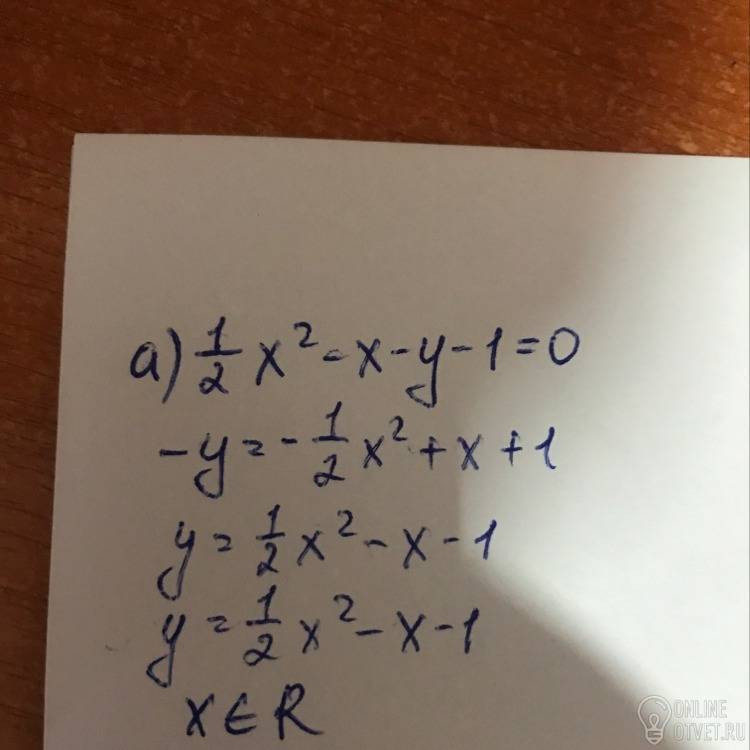 а) 1/2 x² - x - y - 1 = 0
-y = -1/2 x² + x + 1
y = 1/2 x² - x - 1
y = 1/2 x² - x - 1
x ∈ R
ONLINE
OTVET.RU